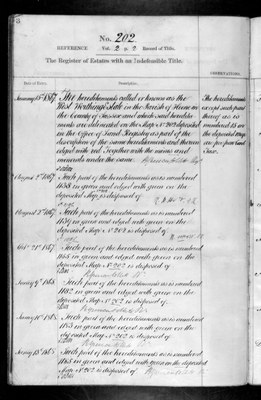 No. 202
REFERENCE Vol. 2 p 2 Record of Title.
The Register of Estates with an Indefeasible Title.
Date of Entry. Description. OBSERVATIONS.
January 15th 1867 The hereditaments called or known as the
West Worthing Estate in the Parish of Heene in
the County of Sussex and which said heredita-
ments are delineated on the Map No 202 deposited
in the Office of Land Registry as part of the
description of the same hereditaments and thereon
edged with red. Together with the mines and
minerals under the same.
The hereditaments
except such part
thereof as is
numbered 15 on
the deposited Map
are
August 2nd 1867 Such part of the hereditaments as is numbered
1138 in green and edged with green on the
deposited Map is disposed of
August 2nd 1867 Such part of the hereditaments as is numbered
1139 in green and edged with green on the
deposited Map No 202 is disposed of
21st 1867 Such part of the hereditaments as is numbered
1165 in green and edged with green on the
deposited Map No 202 is disposed of
January 9th 1868 Such part of the hereditaments as is numbered
1182 in green and edged with green on the
deposited Map No 202 is disposed of.
January 10th 1868 Such part of the hereditaments as is numbered
1183 in green and edged with green on the
deposited Map No 202 is disposed of
January 13th 1868 Such part of the hereditaments as is numbered
1165 in green and edged with green on the deposited
Map No 202 is disposed of